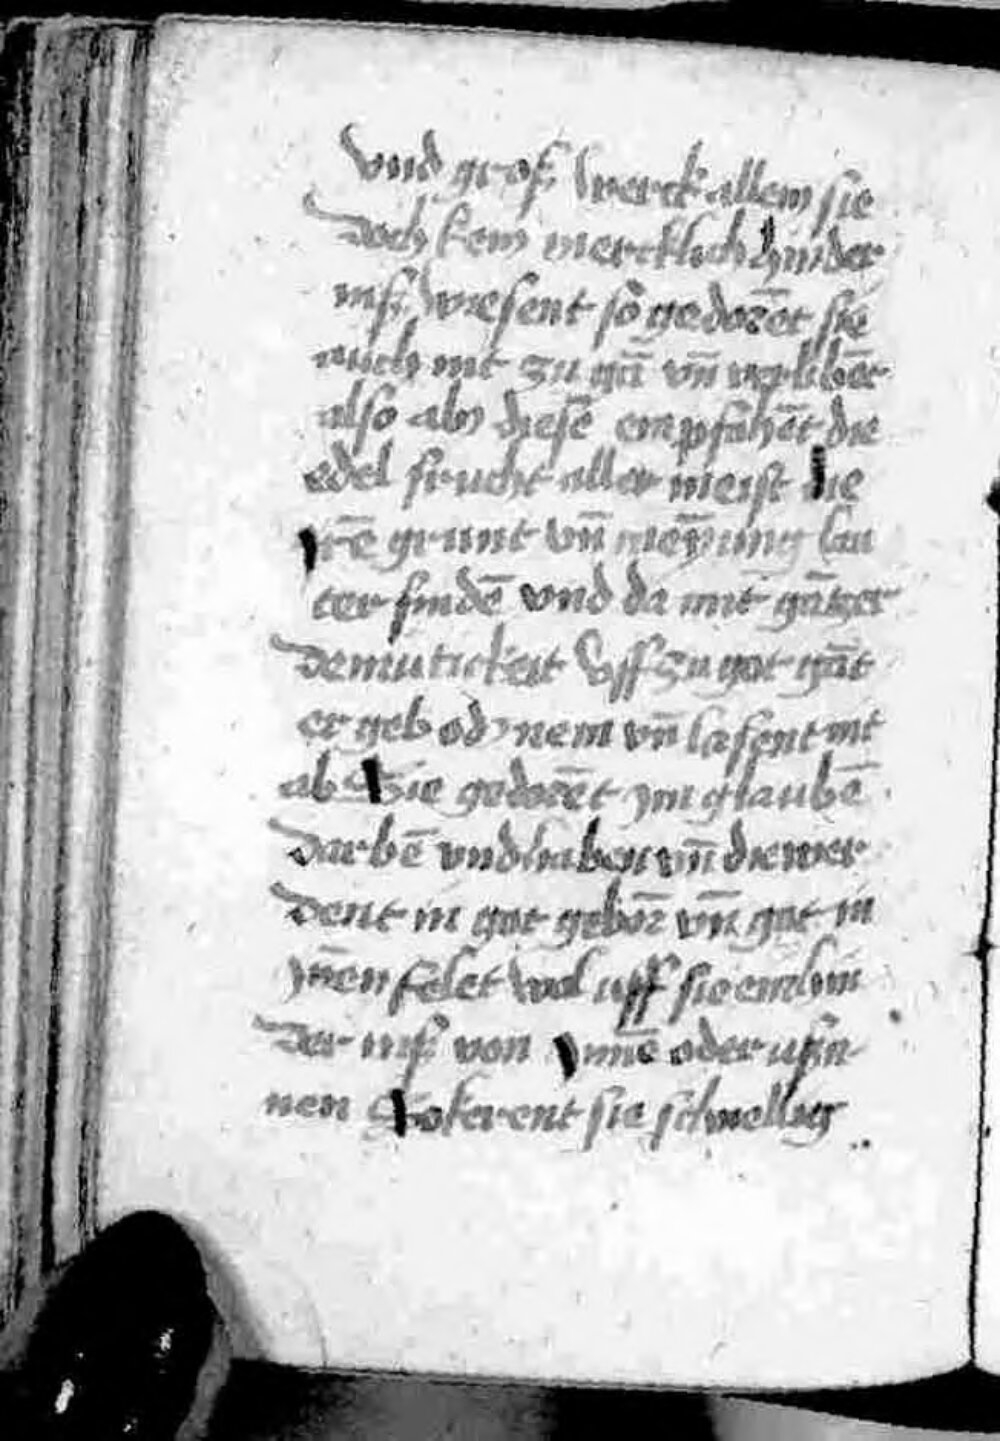 vnd groß werck allem sie
doch kein mercklich hinder
niß wesent so gedorēt sie
auch nit zu gā vn̄ verlibēt
also als diesē empfahēt die
edel frucht aller meist die
irē grunt vn̄ meÿnung lau
ter findē vnd da mit gātzer
demutickeit vff zu got gāt
er geb od nem vn̄ lasent nit
ab Sie gedorēt ym glaubē
darbē vnd haben vn̄ die wer
dent in got geborn̄ vn̄ got in
ynēn felet wol uff sie ein hin
der niß von ynnē oder ußn
nen So kerent sie schnellig